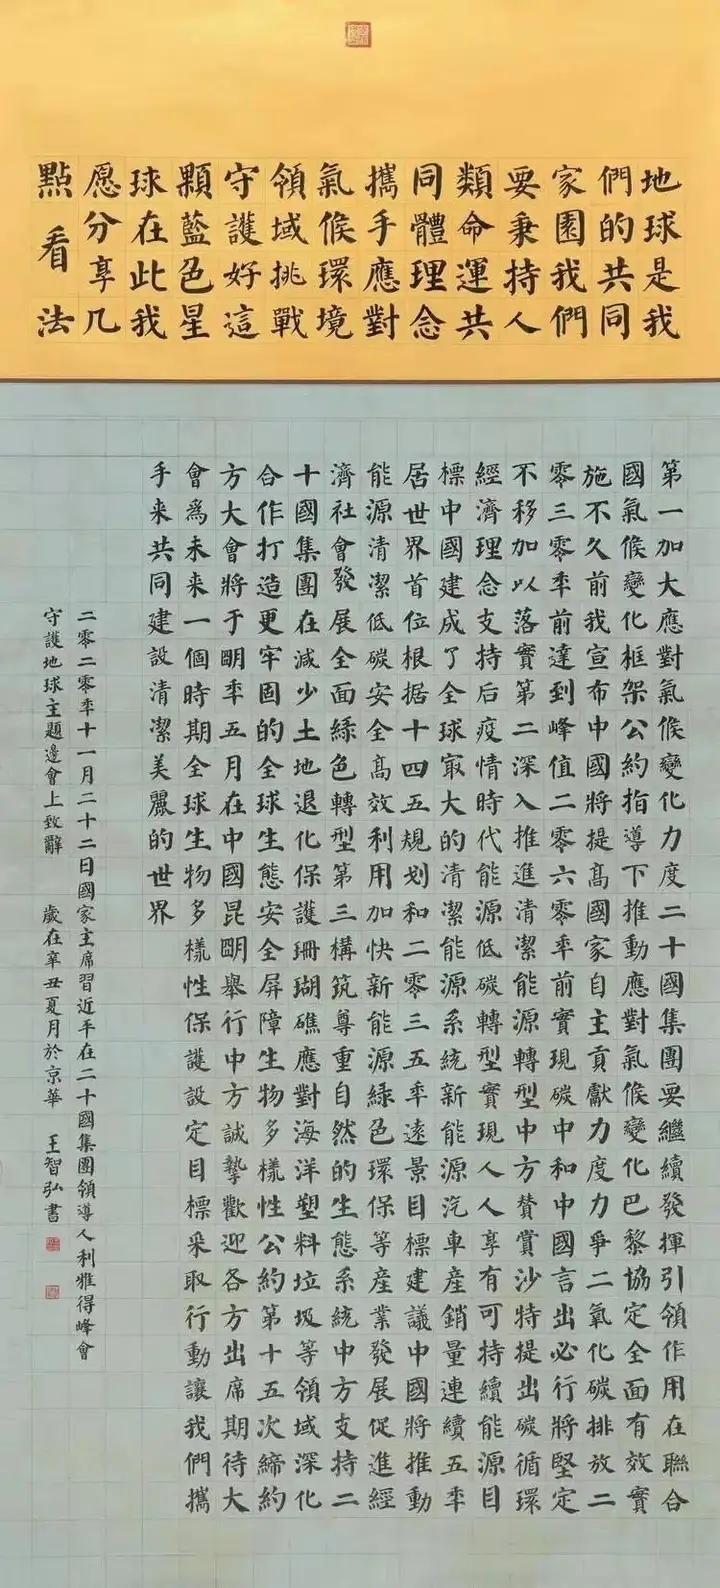 地球是我
們的共同
家園我們
要秉持人
類命運共
同體理念
攜手應對
氣候環境
領域挑戰
守護好這
顆藍色星
球在此我
愿分享几
點看法
第一加大應對氣候變化力度二十國集團要繼續發揮引領作用在聯合
國氣候變化框架公約指導下推動應對氣候變化巴黎協定全面有效實
施不久前我宣布中國將提高國家自主貢獻力度力爭二氧化碳排放二
零三零年前達到峰值二零六零年前實現碳中和中國言出必行將堅定
不移加以落實第二深入推進清潔能源轉型中方贊賞沙特提出碳循環
經濟理念支持后疫情時代能源低碳轉型實現人人享有可持續能源目
標中國建成了全球最大的清潔能源系統新能源汽車産銷量連續五年
居世界首位根据十四五規划和二零三五年遠景目標建議中國將推動
能源清潔低碳安全高效利用加快新能源綠色環保等産業發展促進經
濟社會發展全面綠色轉型第三構筑尊重自然的生態系統中方支持二
十國集團在減少土地退化保護珊瑚礁應對海洋塑料垃圾等領域深化
合作打造更牢固的全球生態安全屏障生物多樣性公約第十五次締約
方大會將于明年五月在中國昆明舉行中方誠摯歡迎各方出席期待大
會爲未來一個時期全球生物多樣性保護設定目標采取行動讓我們攜
手來共同建設清潔美麗的世界
二零二零年十一月二十二日國家主席習近平在二十國集團領導人利雅得峰會
守護地球主題邊會上致辭 歲在辛丑夏月於京華 王智弘書